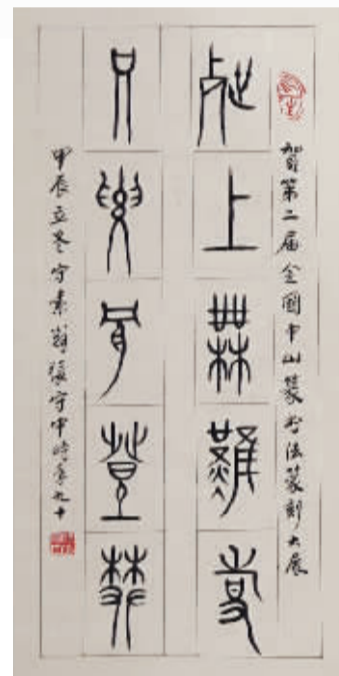 賀第二届全國中山篆书法篆刻大展
世上無難事
只要肯登攀
甲辰立冬守素翁張守中時年九十